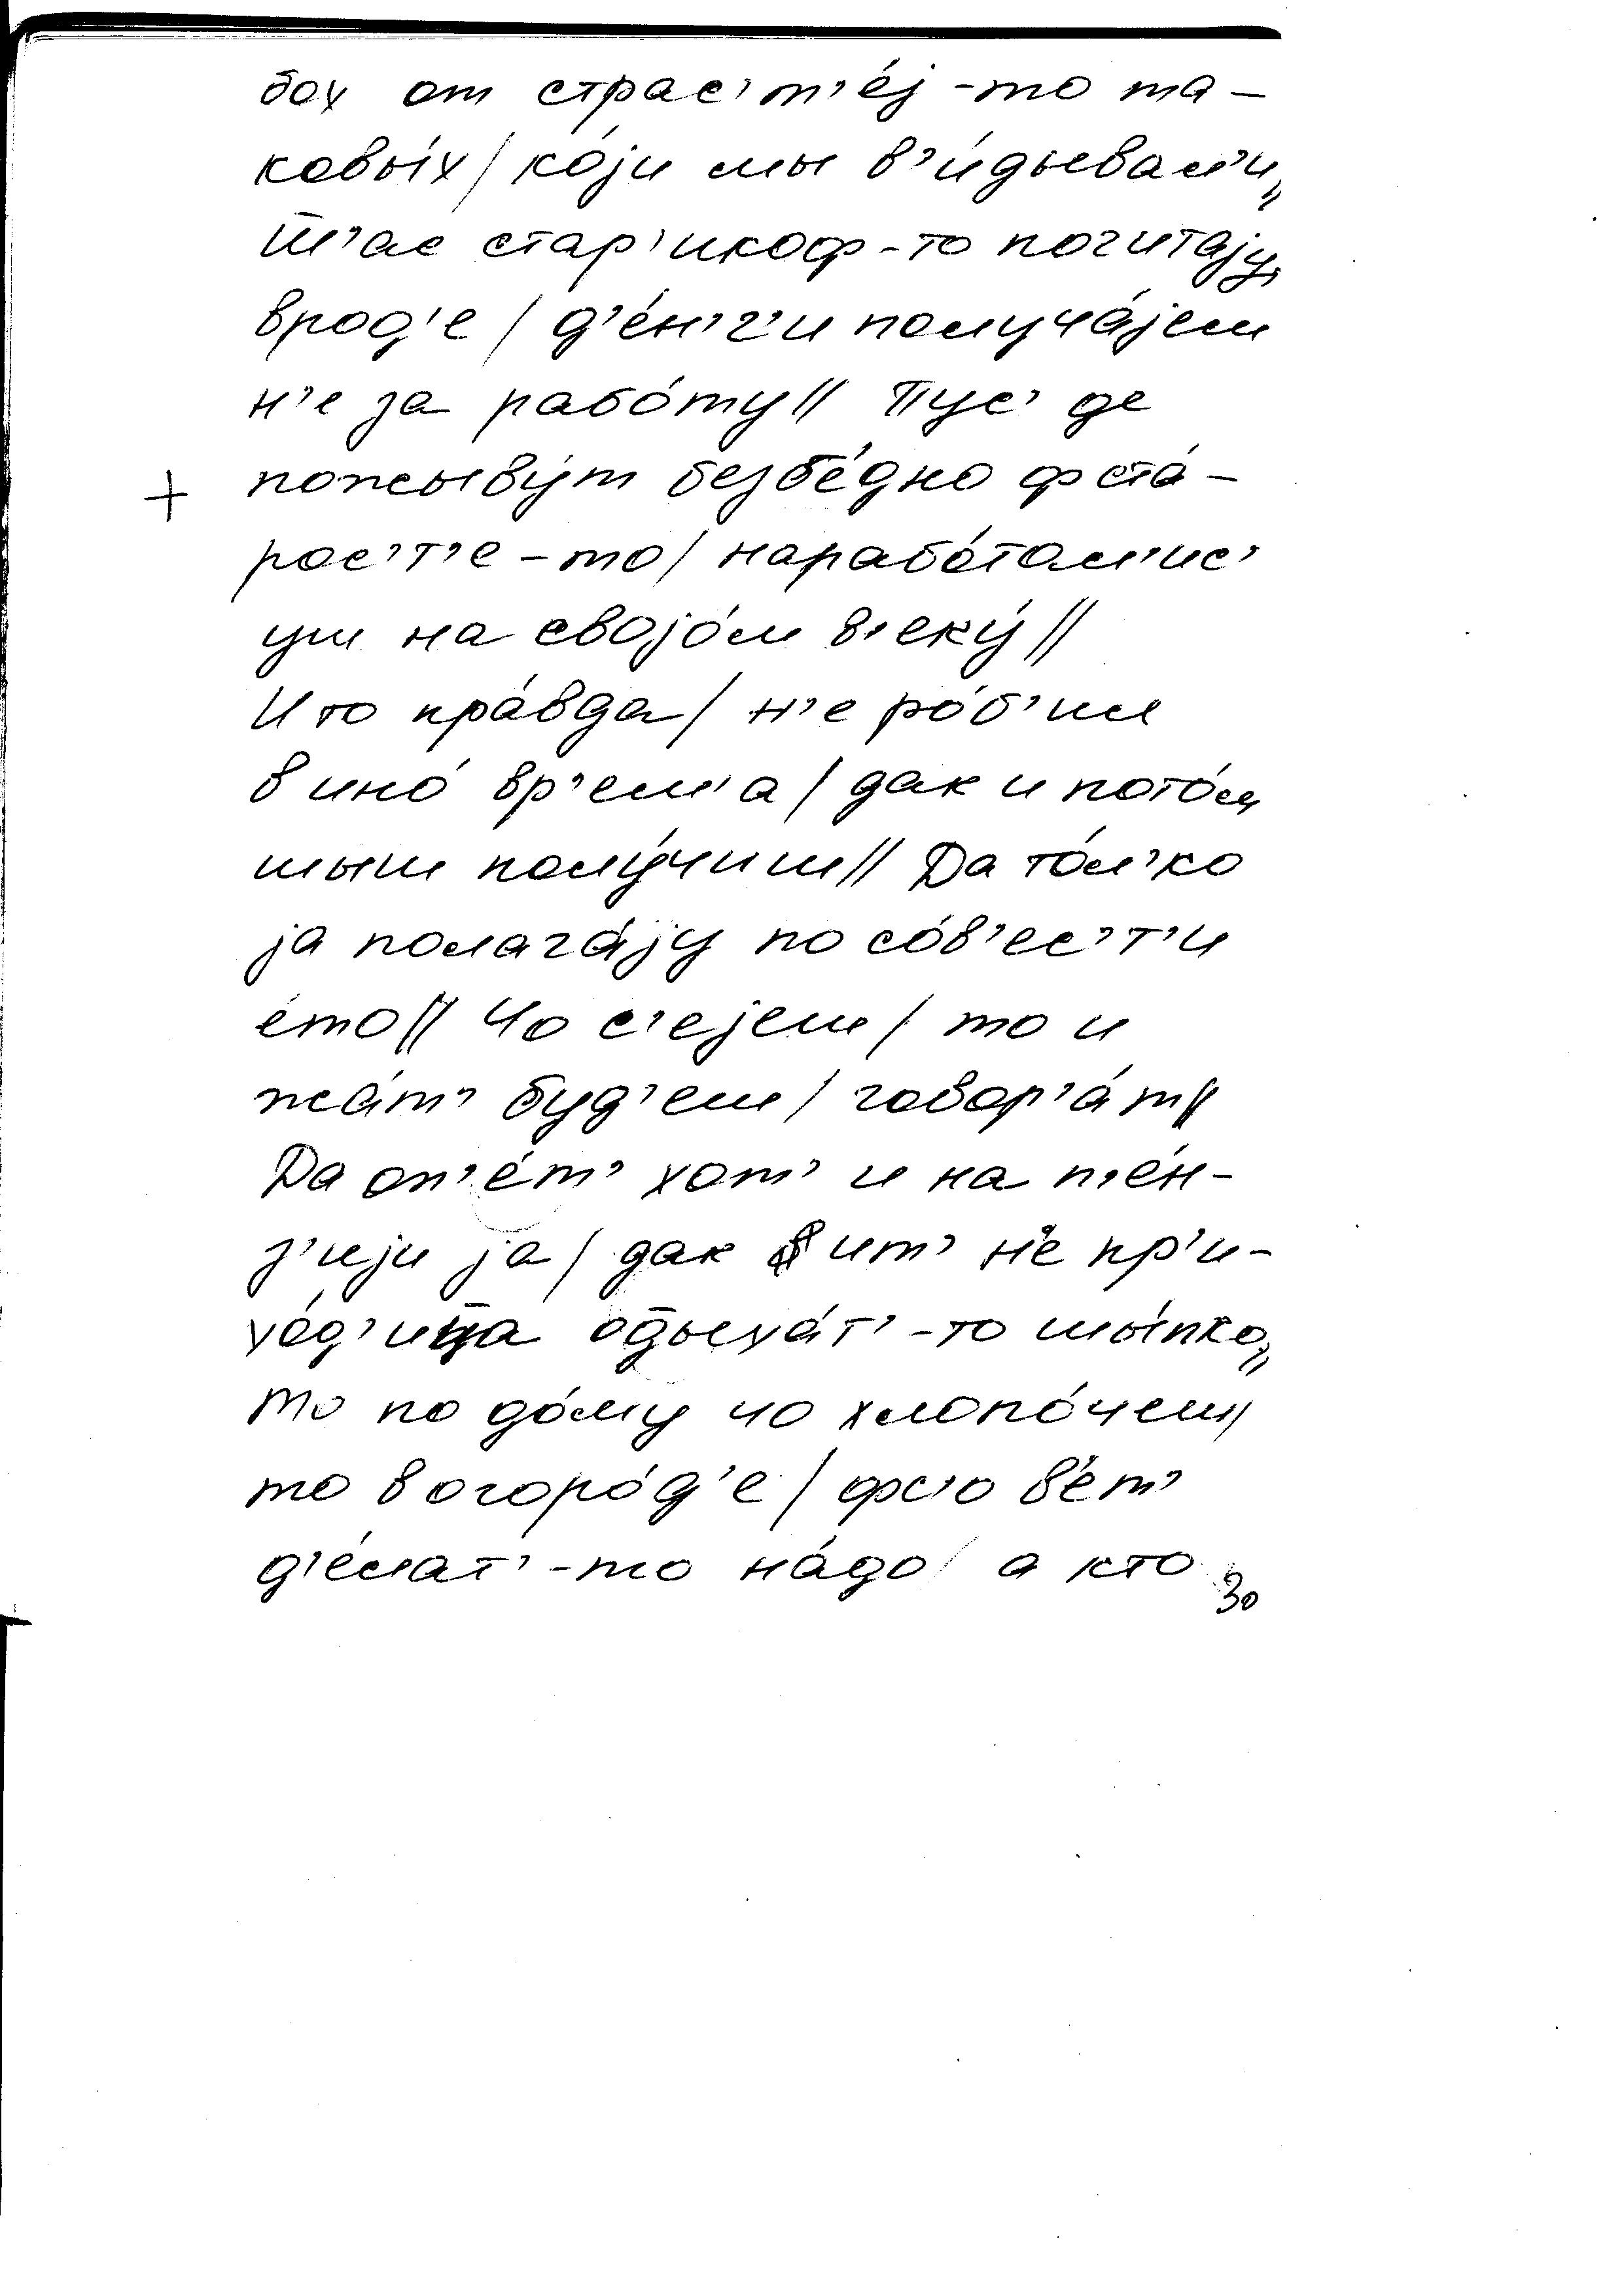 бох от страс’т’е́ј-то та-
ковы́х / ко́ји мы в’и́дывал’и //
Ш’ас стар’икоф-то почита́ју,
врод’е / д’е́н’г’и получа́јем
н’е за рабо́ту // Пус’ де
+ пожыву́т безбе́дно фста́-
рос’т’е-то / нарабо́тал’ис’
уш на своjо́м в’еку́ //
И то пра́вда / н’е ро́б’иш
в ино́ вр’ем’а / дак и пото́м
шыш полу́чиш // Да то́л’ко
ја полага́ју по со́в’ес’т’и
е́то // Чо с’ејем / то и
жа́т’ буд’ем / говор’а́т //
Да оп’е́т’ хот’ и на п’е́н-
з’ији ја / дак вит’ н’е пр’и-
хо́д’ица одыха́т’-то шы́пко //
То по до́му чо хлопо́чеш /
то в огоро́д’е / фс’о в’е́т’
д’е́лат’-то на́до / а кто
30